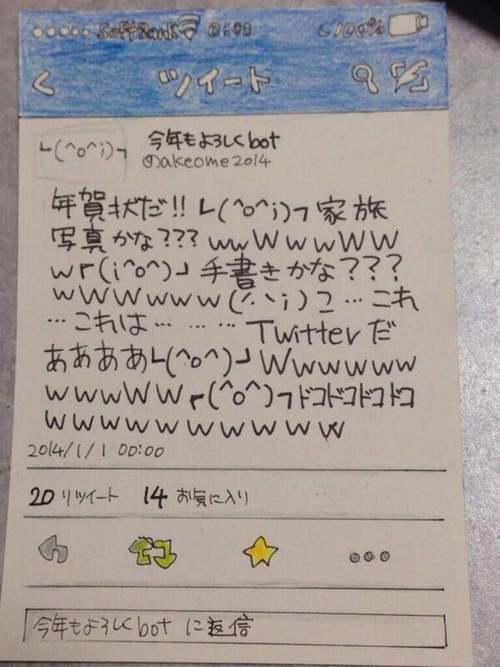 SoftBank 0:00 100%
ツイート
└(^o^i)┐ 今年もよろしくbot
@akeome2014
年賀状だ!! └(^o^i)┐ 家族
写真かな??? wwWwwWW
w┌(i^o^)┘ 手書きかな???
wWWwww(^.^i)コ … これ
… これは … … … Twitterだ
ああああ└(^o^)┘Wwwwww
wwwWW┌(^o^)┐ドコドコドコドコ
wwwwwwwwwww
2014/1/1 00:00
20 リツイート 14 お気に入り
今年もよろしくbot に返信